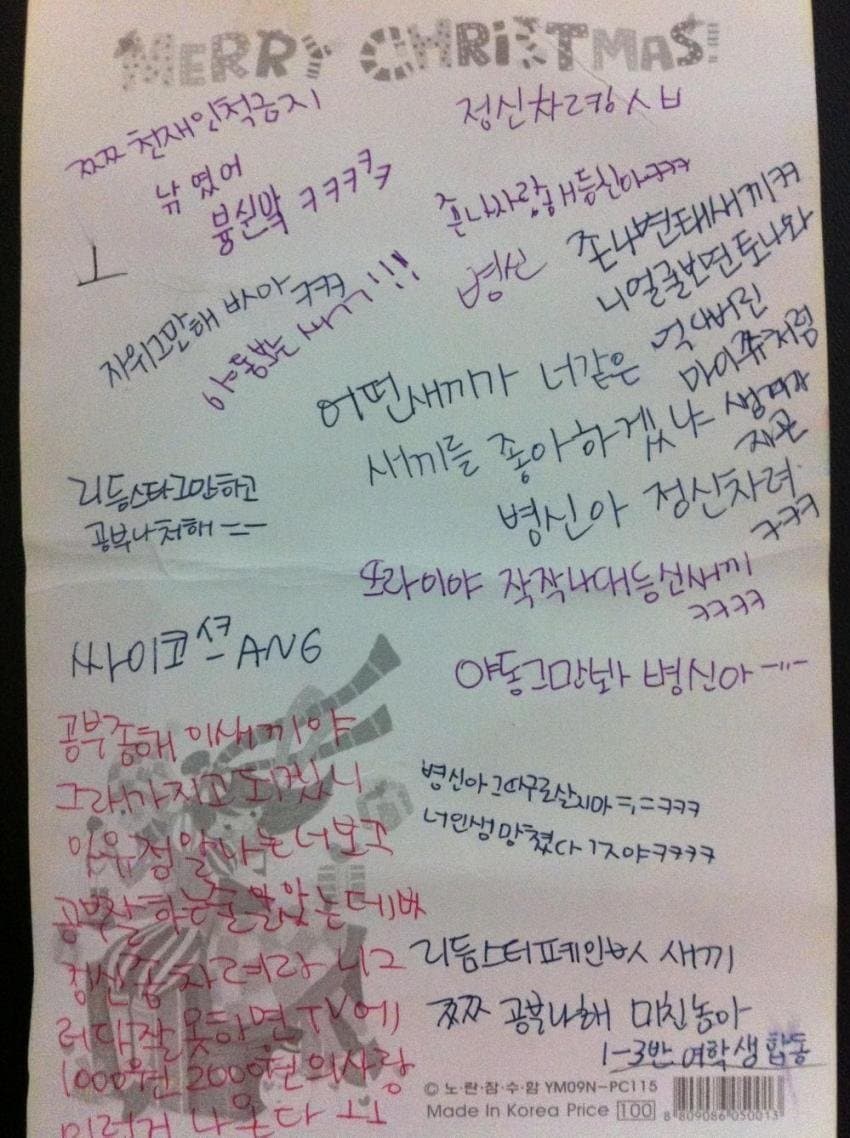 MERRY CHRISTMAS!
쯔쯔 천재인척금지
낚였어
븅쉰박 ㅋㅋㅋㅋㅋ
정신차려킹 ㅅㅂ
존나사랑해등신아ㅋㅋㅋ
병신
존나변태새끼ㅋㅋ
니얼굴보면토나와
ㅗ
자위그만해 ㅋㅋㅋ
야동보는 새끼!!!
어떤새끼가 너같은
마이쮸처럼
새끼를 좋아하겠냐
병신아 정신차려
ㅋㅋㅋ
리듬스타그만하고
공부나처해 ㅡㅡ
또라이야 작작나대등신새끼
ㅋㅋㅋㅋ
싸이코 ANG
야동그만봐 병신아 ㅡㅡ
공부좀해 이새끼야
그래가지고 되겠니
정말나는너보고
공부잘하는줄알았는데
정신좀 차려라 니그
러다잘못하면TV에
1000원 2000원의사랑
이런거 나온다 ㅜㅜ
병신아그따구로살지마ㅋㅋㅋ
너인생망쳤다 ㅋㅋㅋㅋ
리듬스타페인 새끼
쯔쯔 공부나해 미친놈아
1-3반 여학생합동
© 노·란·잠·수·함 YM09N-PC115
Made in Korea Price 100
8 809086 050013